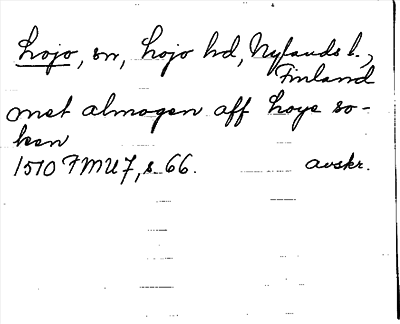 Lojo, sn, Lojo hd, Nylands l.,
Finland
met almogen aff Loye so-
ken
1510 FMU 7, s. 66. avskr.